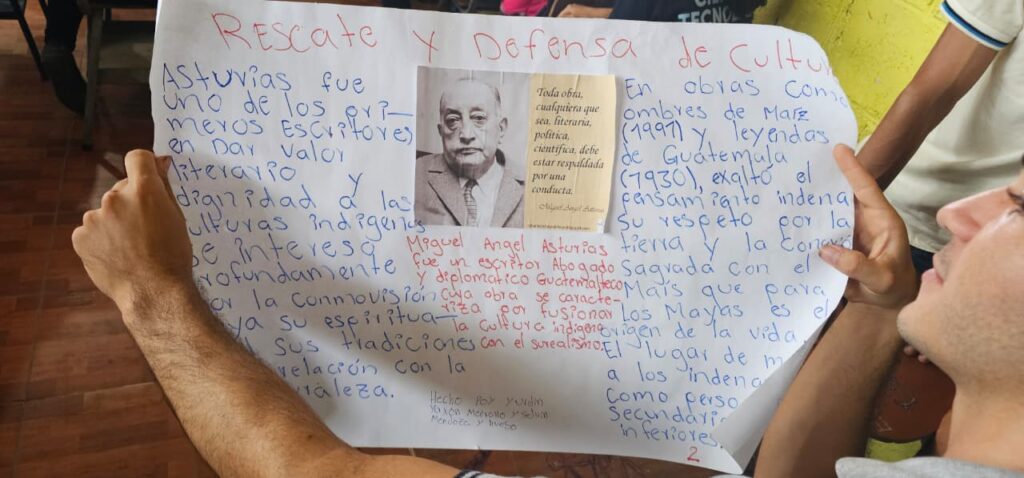 Rescate y Defensa de Cultur
Asturias fue
uno de los pri-
meros Escritores
en Dar valor
literario y
dignidad a las
culturas indigenas
se interesa
profundamente
por la Conmovisión
ya su espiritua-
sus tradiciones
relación con la
raleza.
Toda obra,
cualquiera que
sea, literaria,
política,
científica, debe
estar respaldada
por una
conducta.
Miguel Angel Asturias
Miguel Angel Asturias
fue un escritor Abogado
y diplomatico Guatemalteco
cuya obra se caracte-
riza por fusionar
la cultura indigena
con el surealismo.
En obras Como
ombres de Maíz
y leyendas
de Guatemala
(1930), exaltó el
pensamiento indena
Su respeto por la
tierra y la
Sagrada con el
Maís que para
Los Mayas es el
origen de la vida
El lugar de m
a los indena
Como perso
Secundari
inferiores
Hecho Por
Mendoza y
2
TECNOL